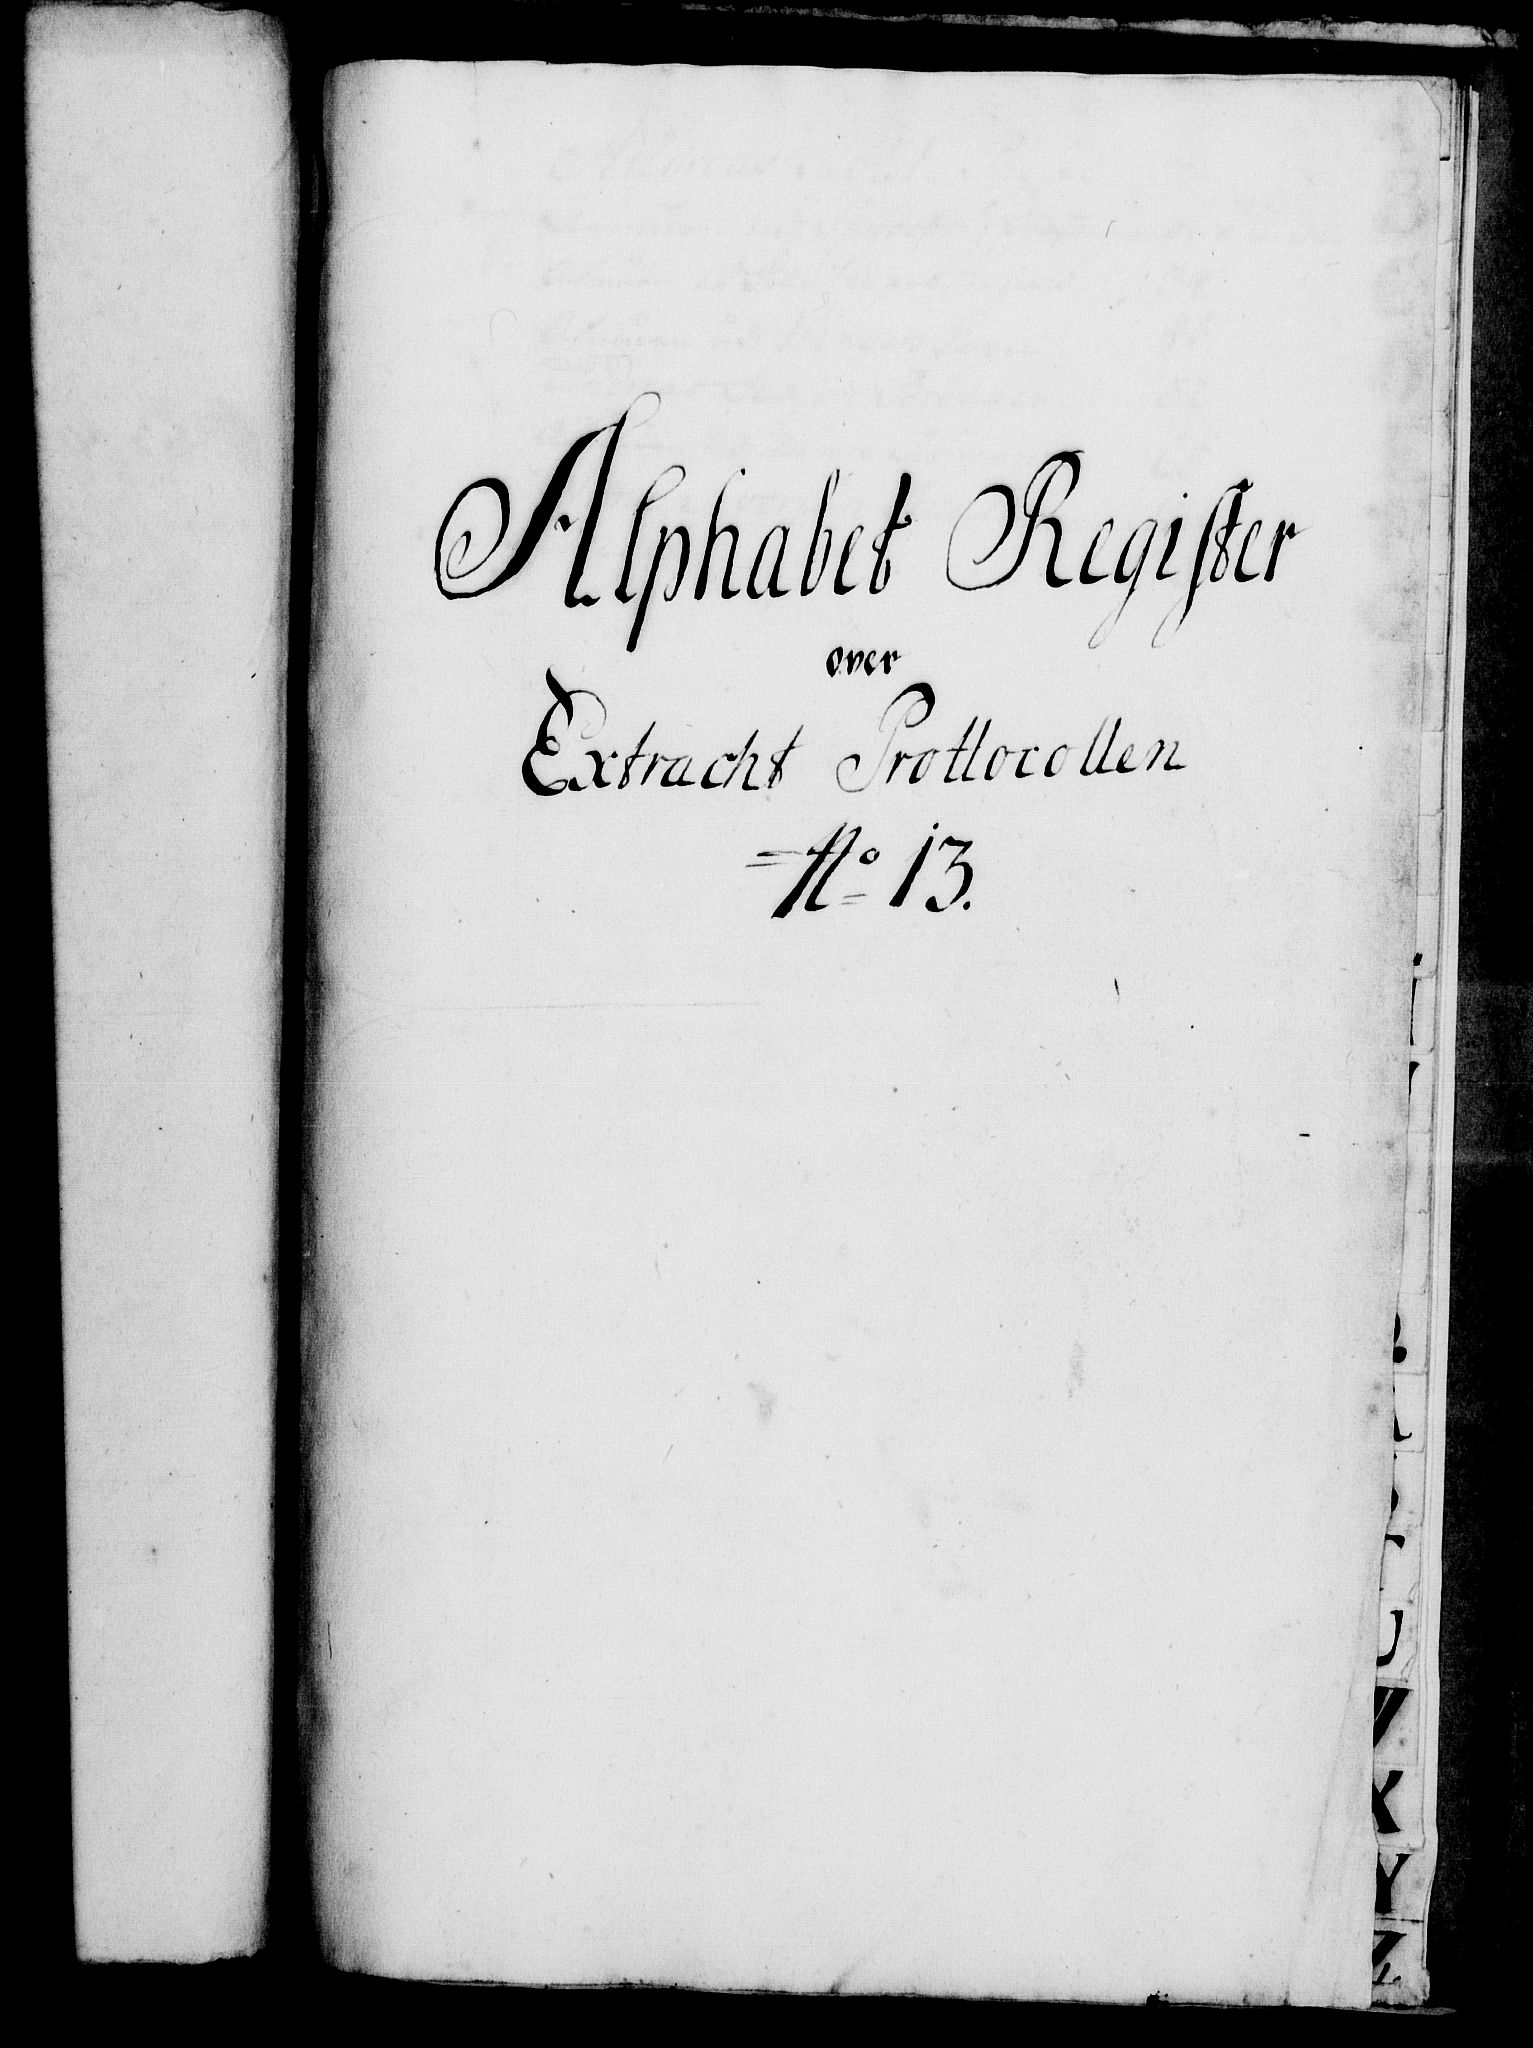 Alphabet Register
over
Extracht Prottocollen
No 13.